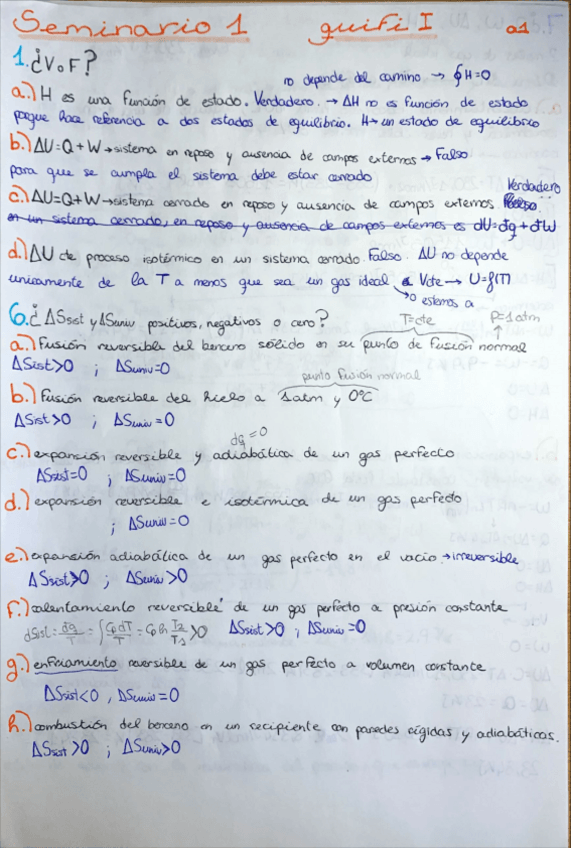 Seminario 1 quifi I 01
1. ¿V o F?
no depende del camino → ∮H=0
a.) H es una función de estado. Verdadero. → ΔH no es función de estado
porque hace referencia a dos estados de equilibrio. H→ un estado de equilibrio
b.) ΔU=Q+W→sistema en reposo y ausencia de campos externos → Falso
para que se cumpla el sistema debe estar cerrado
Verdadero
c.) ΔU=Q+W→sistema cerrado en reposo y ausencia de campos externos. Falso.
en un sistema cerrado, en reposo y ausencia de campos externos es dU=đq+đW
d.) ΔU de proceso isotérmico en un sistema cerrado. Falso. ΔU no depende
unicamente de la T a menos que sea un gas ideal → Vcte → U=f(T)
→ o estemos a
6. ¿ΔSsist y ΔSuniv positivos, negativos o cero? T=cte P=1atm
a.) Fusión reversible del benceno sólido en su punto de fusión normal
ΔSsist>0 ; ΔSuniv=0
punto fusión normal
b.) Fusión reversible del hielo a 1atm y 0ºC
ΔSsist>0 ; ΔSuniv=0
dq=0
c.) expansión reversible y adiabática de un gas perfecto
ΔSsist=0 ; ΔSuniv=0
d.) expansión reversible e isotérmica de un gas perfecto
; ΔSuniv=0
e.) expansión adiabática de un gas perfecto en el vacio → irreversible
ΔSsist>0 ; ΔSuniv>0
f.) calentamiento reversible de un gas perfecto a presión constante
dSsist= dq/T = ∫ Cp dT/T = Cp ln T2/T1 >0 ΔSsist>0 ; ΔSuniv=0
g.) enfriamiento reversible de un gas perfecto a volumen constante
ΔSsist<0 , ΔSuniv=0
h.) combustión del benceno en un recipiente con paredes rígidas y adiabáticas.
ΔSsist>0 ; ΔSuniv>0